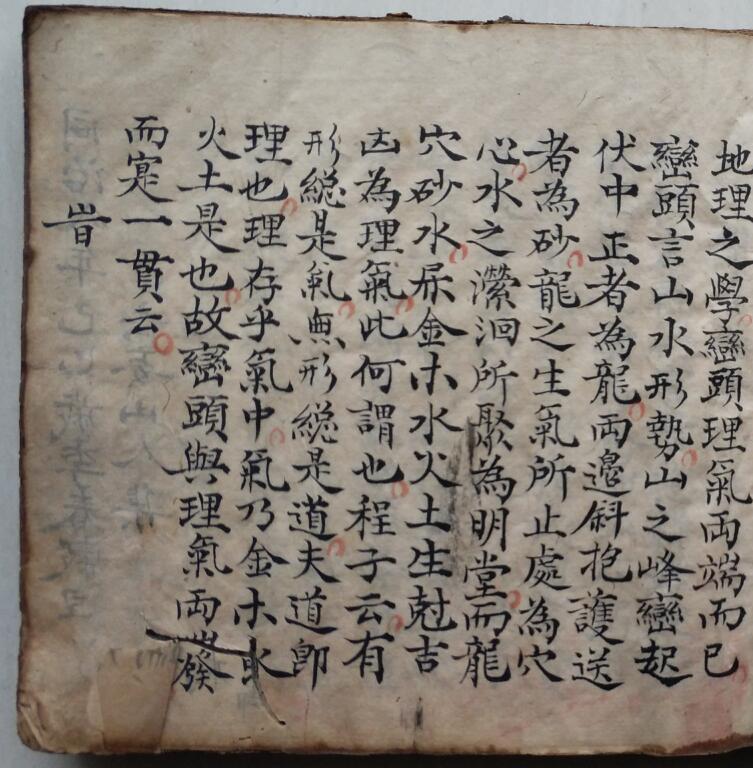 地理之學巒頭理氣両端而已
巒頭言山水形勢山之峰巒起
伏中正者為龍両邊斜抱護送
者為砂龍之生氣所止處為穴
心水之瀠洄所聚為明堂而龍
穴砂水屛金木水火土生尅吉
凶為理氣此何謂也程子云有
形緫是氣無形緫是道夫道即
理也理存乎氣中氣乃金木水
火土是也故巒頭與理氣両
而寔一貫云
旹